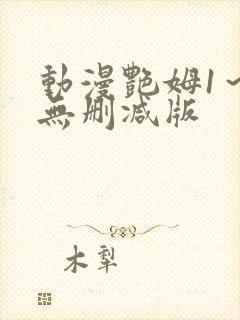 動漫艷姆1～
無刪減版
木犁